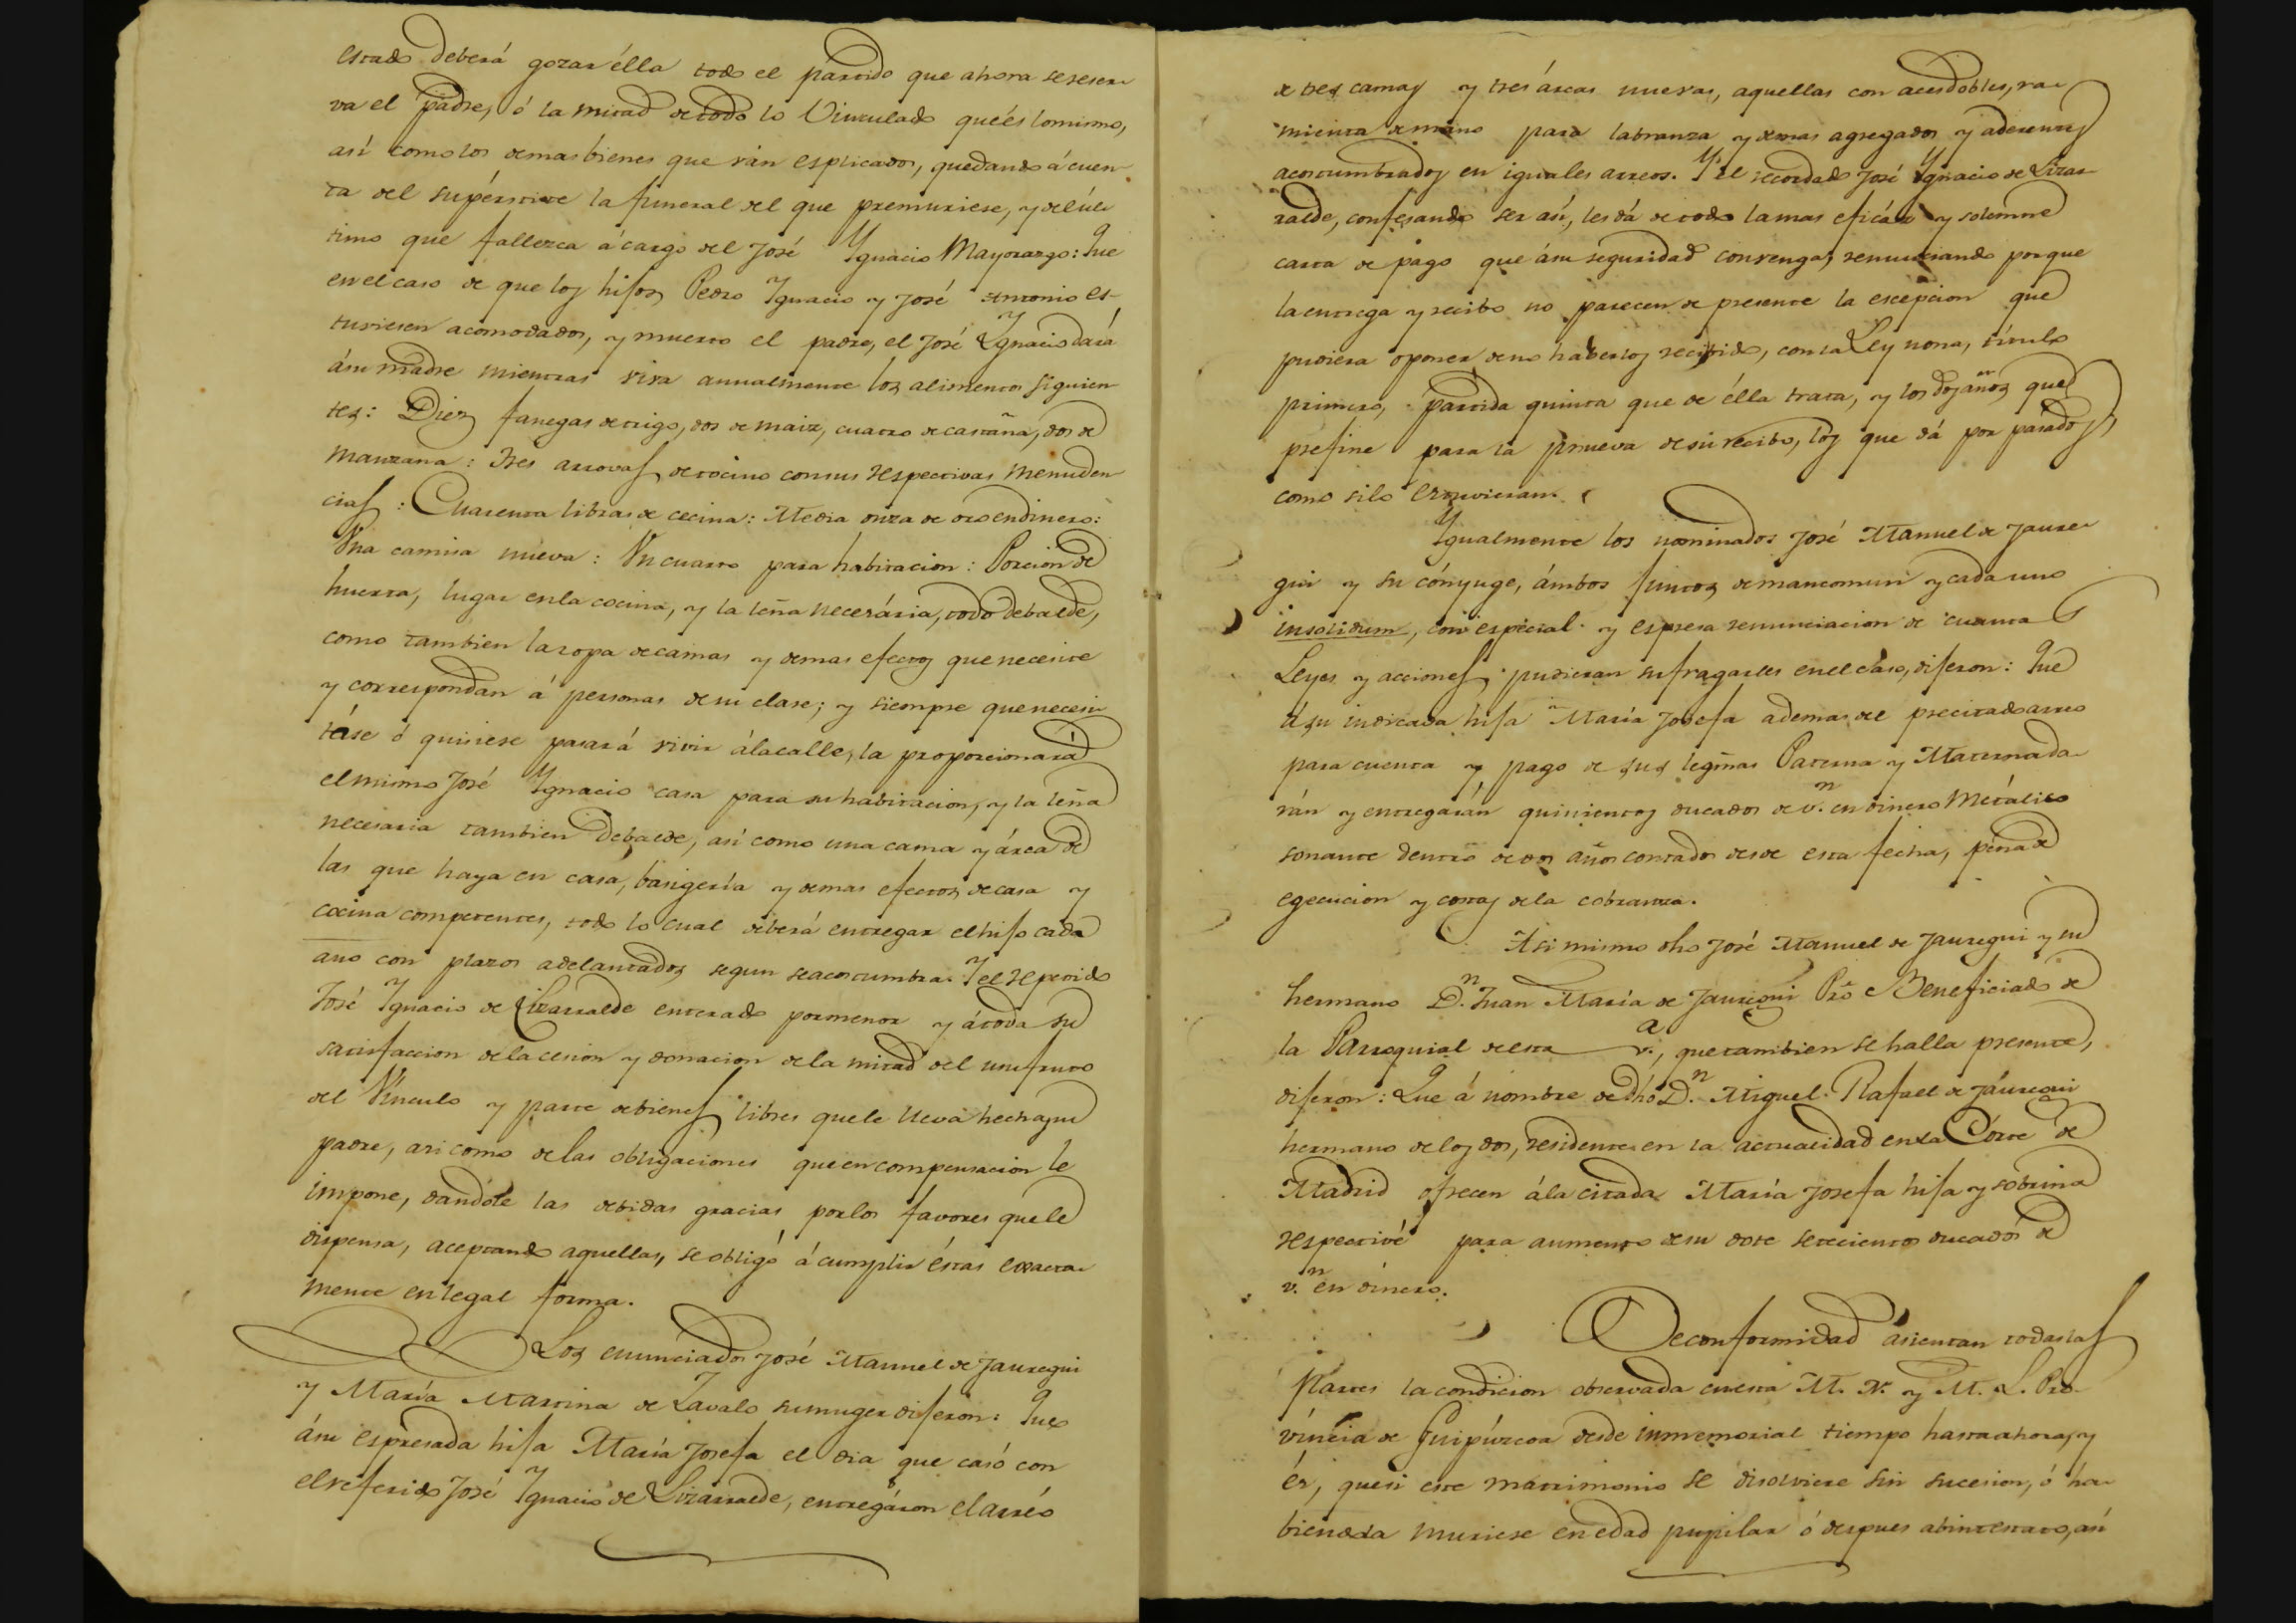 estado deberá gozar élla todo el partido que ahora se reser-
va el padre, ó la mitad de todo lo Vinculado que és lo mismo,
así como los demas bienes que ván esplicados, quedando á cuen-
ta del supérstite la funeral del que premuriese, y del úl-
timo que fallezca á cargo del José Ygnacio Mayorazgo: Que
en el caso de que los hijos Pedro Ygnacio y José Antonio es-
tuviesen acomodados, y muerto el padre, el José Ygnacio dará
á su madre mientras viva anualmente los alimentos siguien-
tes: Diez fanegas de trigo, dos de maiz, cuatro de castaña, dos de
manzana: Tres arrovas de tocino con sus respectivas menuden-
cias: Cuarenta libras de cecina: Media onza de oro en dinero:
Una camisa nueva: Un cuarto para habitacion: Porcion de
huerta, lugar en la cocina, y la leña necesária, todo debalde,
como tambien la ropa de camas y demas efectos que necesite
y correspondan á personas de su clase; y siempre que necesi-
táse ó quisiese pasar á vivir á la calle, la proporcionará
el mismo José Ygnacio casa para su habitacion, y la leña
necesaria tambien debalde, así como una cama y árca de
las que haya en casa, bagigería y demas efectos de casa y
cocina competentes, todo lo cual deberá entregar el hijo cada
año con plazos adelantados segun se acostumbra. Y el referido
José Ygnacio de Lizarralde enterado pormenor y á toda su
satisfaccion de la cesion y donacion de la mitad del usufruto
del Vínculo y parte de bienes libres que le lleva hecha su
padre, asi como de las obligaciones que en compensacion le
impone, dandole las debidas gracias por los favores que le
dispensa, aceptando aquellas, se obligó á cumplir éstas exacta-
mente en legal forma.
Los enunciados José Manuel de Jauregui
y María Martina de Zavalo su muger dijeron: Que
á su espresada hija María Josefa el dia que casó con
el referido José Ygnacio de Lizarralde, entregáron el arréo
de tres camas y tres árcas nuevas, aquellas con acesdobles, ra-
mienta de mano para labranza y demas agregados y aderentes
acostumbrados en iguales arreos. Y el recordado José Ygnacio de Lizar-
ralde, confesando ser así, les dá de todo la mas eficáz y solemne
carta de pago que á su seguridad convenga, renunciando porque
la entrega y recibo no parecen de presente la escepcion que
pudiera oponer de no haberlos recibido, con la Ley nona, título
primero, partida quinta que de élla trata, y los dos años que
prefine para la prueva de su recibo, los que dá por pasados
como si lo estuvieran.
Ygualmente los nominados José Manuel de Jaure-
gui y su cónyuge, ámbos juntos de mancomun y cada uno
insolidum, con especial y espresa renunciacion de cuanta
Leyes y acciones pudieran sufragarles en el caso, dijeron: Que
á su indicada hija María Josefa ademas del precitado arreo
para cuenta y pago de sus legmas Paterna y Materna da-
rán y entregarán quinientos ducados de v.n en dinero Metálico
sonante dentro de dos años contados desde esta fecha, pena de
egecucion y costas de la cobranza.
Asi mismo dho José Manuel de Jauregui y su
hermano D.n Juan María de Jauregui Pro Beneficiado de
la Parroquial de esta v.a, que tambien se halla presente,
dijeron: Que á nombre de dho D.n Miguel Rafael de Jáuregui
hermano de los dos, residente en la actualidad en la Córte de
Madrid ofrecen á la citada María Josefa hija y sobrina
respectivé para aumento de su dote setecientos ducados de
v.n en dinero.
De conformidad asientan todas las
Partes la condicion observada en esta M. N. y M. L. Pro-
víncia de Guipúzcoa desde inmemorial tiempo hasta ahora, y
és, que si este matrimonio se disolviese sin sucesion, ó ha-
biendola muriese en edad pupilar ó despues abintestato, así